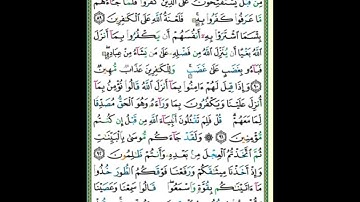 مِن قَبْلُ يَسْتَفْتِحُونَ عَلَى الَّذِينَ كَفَرُوا فَلَمَّا جَاءَهُم
مَّا عَرَفُوا كَفَرُوا بِهِ فَلَعْنَةُ اللَّهِ عَلَى الْكَافِرِينَ ٨٩
بِئْسَمَا اشْتَرَوْا بِهِ أَنفُسَهُمْ أَن يَكْفُرُوا بِمَا أَنزَلَ
اللَّهُ بَغْيًا أَن يُنَزِّلَ اللَّهُ مِن فَضْلِهِ عَلَى مَن يَشَاءُ مِنْ عِبَادِهِ
فَبَاءُو بِغَضَبٍ عَلَى غَضَبٍ وَلِلْكَافِرِينَ عَذَابٌ مُّهِينٌ
٩٠ وَإِذَا قِيلَ لَهُمْ ءَامِنُوا بِمَا أَنزَلَ اللَّهُ قَالُوا نُؤْمِنُ بِمَا
أُنزِلَ عَلَيْنَا وَيَكْفُرُونَ بِمَا وَرَاءَهُ وَهُوَ الْحَقُّ مُصَدِّقًا
لِّمَا مَعَهُمْ قُلْ فَلِمَ تَقْتُلُونَ أَنبِيَاءَ اللَّهِ مِن قَبْلُ إِن كُنتُم
مُّؤْمِنِينَ ٩١ ۞ وَلَقَدْ جَاءَكُم مُّوسَى بِالْبَيِّنَاتِ
ثُمَّ اتَّخَذْتُمُ الْعِجْلَ مِن بَعْدِهِ وَأَنتُمْ ظَالِمُونَ ٩٢
وَإِذْ أَخَذْنَا مِيثَاقَكُمْ وَرَفَعْنَا فَوْقَكُمُ الطُّورَ خُذُوا
مَا ءَاتَيْنَاكُم بِقُوَّةٍ وَاسْمَعُوا قَالُوا سَمِعْنَا وَعَصَيْنَا